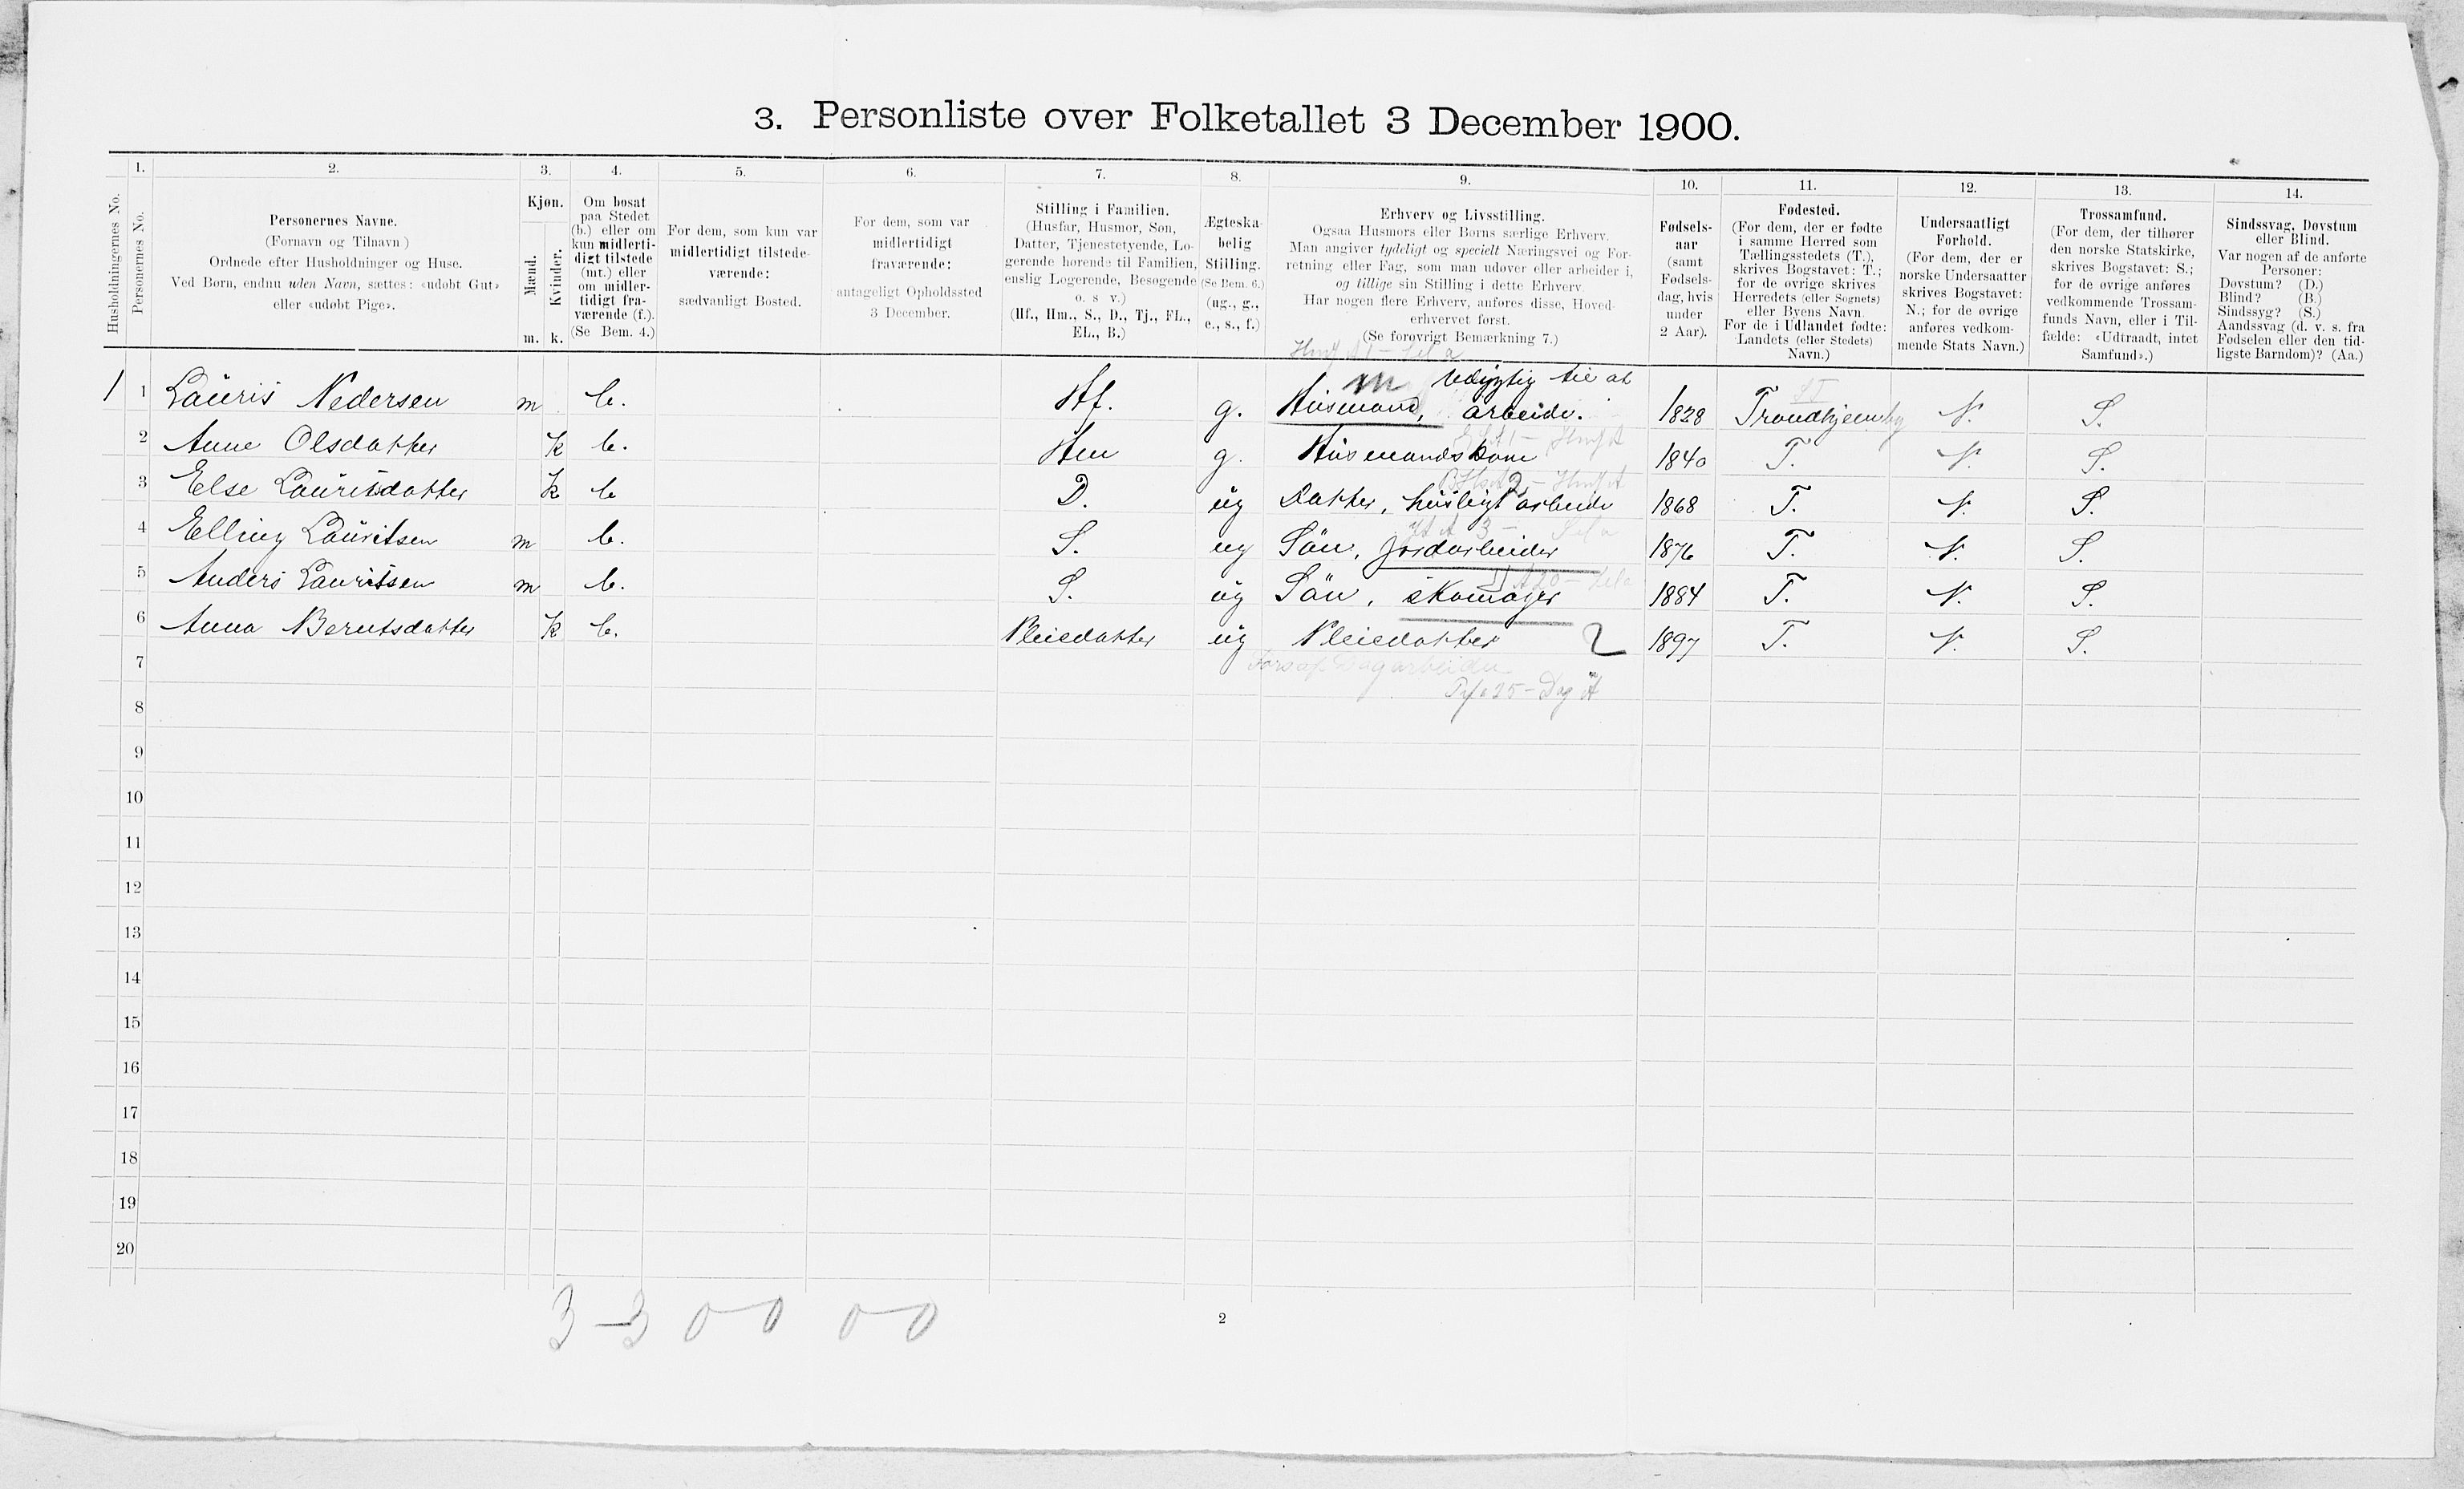 3. Personliste over Folketallet 3 December 1900.
Husholdningernes No.
1.
Personernes No.
2.
Personernes Navne.
(Fornavn og Tilnavn)
Ordnede efter Husholdninger og Huse.
Ved Børn, endnu uden Navn, sættes: «udøbt Gut»
eller «udøbt Pige».
3.
Kjøn.
Mænd.
Kvinder.
m. k.
4.
Om bosat
paa Stedet
(b.) eller om
kun midlerti-
digt tilstede
(mt.) eller
om midler-
tidigt fra-
værende (f.).
(Se Bem. 4.)
5.
For dem, som kun var
midlertidigt tilstede-
værende:
sædvanligt Bosted.
6.
For dem, som var
midlertidigt
fraværende:
antageligt Opholdssted
3 December.
7.
Stilling i Familien.
(Husfar, Husmor, Søn,
Datter, Tjenestetyende, Lo-
gerende hørende til Familien,
enslig Logerende, Besøgende
o. s v.)
(Hf., Hm., S., D., Tj., FL.,
EL., B.)
8.
Ægteska-
belig
Stilling.
(Se Bem. 6.)
(ug., g.,
e., s., f.)
9.
Erhverv og Livsstilling.
Ogsaa Husmors eller Børns særlige Erhverv.
Man angiver tydeligt og specielt Næringsvei og For-
retning eller Fag, som man udøver eller arbeider i,
og tillige sin Stilling i dette Erhverv.
Har nogen flere Erhverv, anføres disse, Hoved-
erhvervet først.
(Se forøvrigt Bemærkning 7.)
10.
Fødsels-
aar
(samt
Fødsels-
dag, hvis
under
2 Aar).
11.
Fødested.
(For dem, der er fødte
i samme Herred som
Tællingsstedets (T.),
skrives Bogstavet: T.;
for de øvrige skrives
Herredets (eller Sognets)
eller Byens Navn.
For de i Udlandet fødte:
Landets (eller Stedets)
Navn.)
12.
Undersaatligt
Forhold.
(For dem, der er
norske Undersaatter
skrives Bogstavet:
N.; for de øvrige
anføres vedkom-
mende Stats Navn.)
13.
Trossamfund.
(For dem, der tilhører
den norske Statskirke,
skrives Bogstavet: S.;
for de øvrige anføres
vedkommende Trossam-
funds Navn, eller i Til-
fælde: «Udtraadt, intet
Samfund».)
14.
Sindssvag, Døvstum
eller Blind.
Var nogen af de anførte
Personer:
Døvstum? (D.)
Blind? (B.)
Sindssyg? (S.)
Aandssvag (d. v. s. fra
Fødselen eller den tid-
ligste Barndom)? (Aa.)
1 1 Lauris Pedersen m b. Hf. g. Husmand, Udygtig til at arbeide. 1828 Trondhjem by N. S.
2 Anne Olsdatter k b. Hm g. Husmandskone 1840 T. N. S.
3 Else Laurisdatter k b D. ug Datter, husligt arbeide 1868 T. N. S.
4 Elling Lauritsen m b. S. ug Søn, jordarbeider 1876 T. N. S.
5 Anders Lauritsen m b. S. ug Søn, skomager 1884 T. N. S.
6 Anna Berntsdatter k b. Pleiedatter ug Pleiedatter 2 1897 T. N. S.
7 Forsøf Dagarbeider
8
9
10
11
12
13
14
15
16
17
18
19
20
3 – 3 0 – 0 0 – 0
2